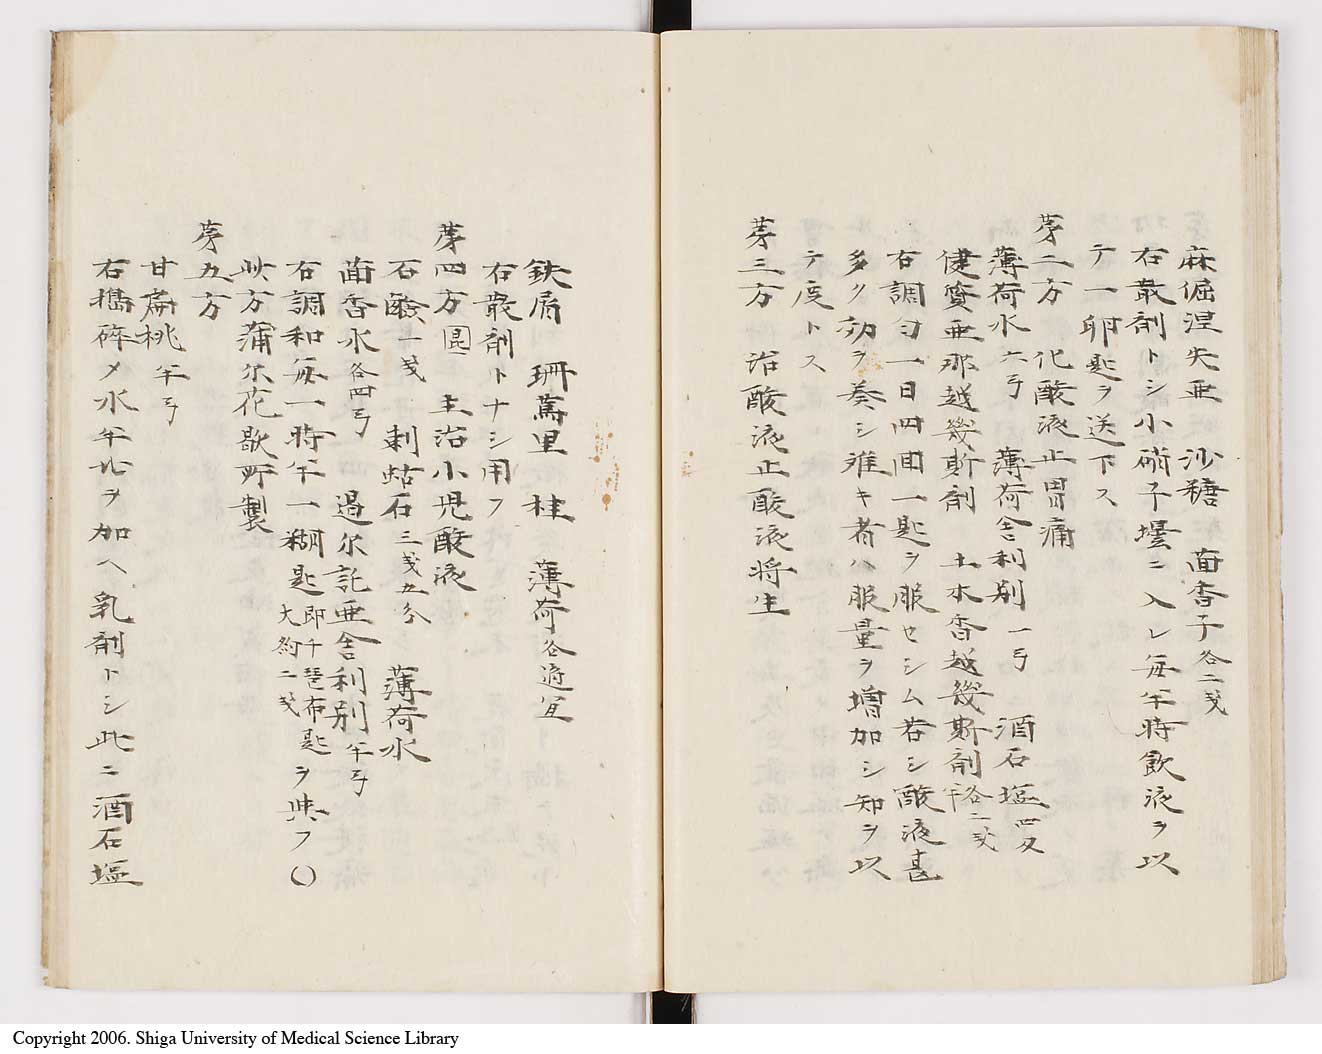 麻倔涅矢亜 沙糖 茴香子各二戔
右散剤トシ小硝子壜ニ入レ毎半時飲液ヲ以
テ一卵匙ヲ送下ス
苐二方 化酸液止胃痛
薄荷水六弓 薄荷舎利別一弓 酒石塩四
健質亜那越幾斯剤 土木香越幾斯剤各二戔半
右調匀一日四回一匙ヲ服セシム若シ酸液甚
多ク効ヲ奏シ難キ者ハ服量ヲ増加シ知ヲ以
テ度トス
苐三方 治酸液止酸液将生
鉄屑 珊篤里 桂 薄荷各適宜
右散剤トナシ用フ
苐四方 主治小児酸液
石鹸一戔 剌蛄石三戔五分 薄荷水
茴香水各四弓 過尓託亜舎利別半弓
右調和毎一時半一糊匙即千琶布匙大約二戔ヲ與フ〇
此方蒲尓花歇所製
苐五方
甘扁桃半弓
右擣砕メ水半比ヲ加ヘ乳剤トシ此ニ酒石塩
Copyright 2006. Shiga University of Medical Science Library